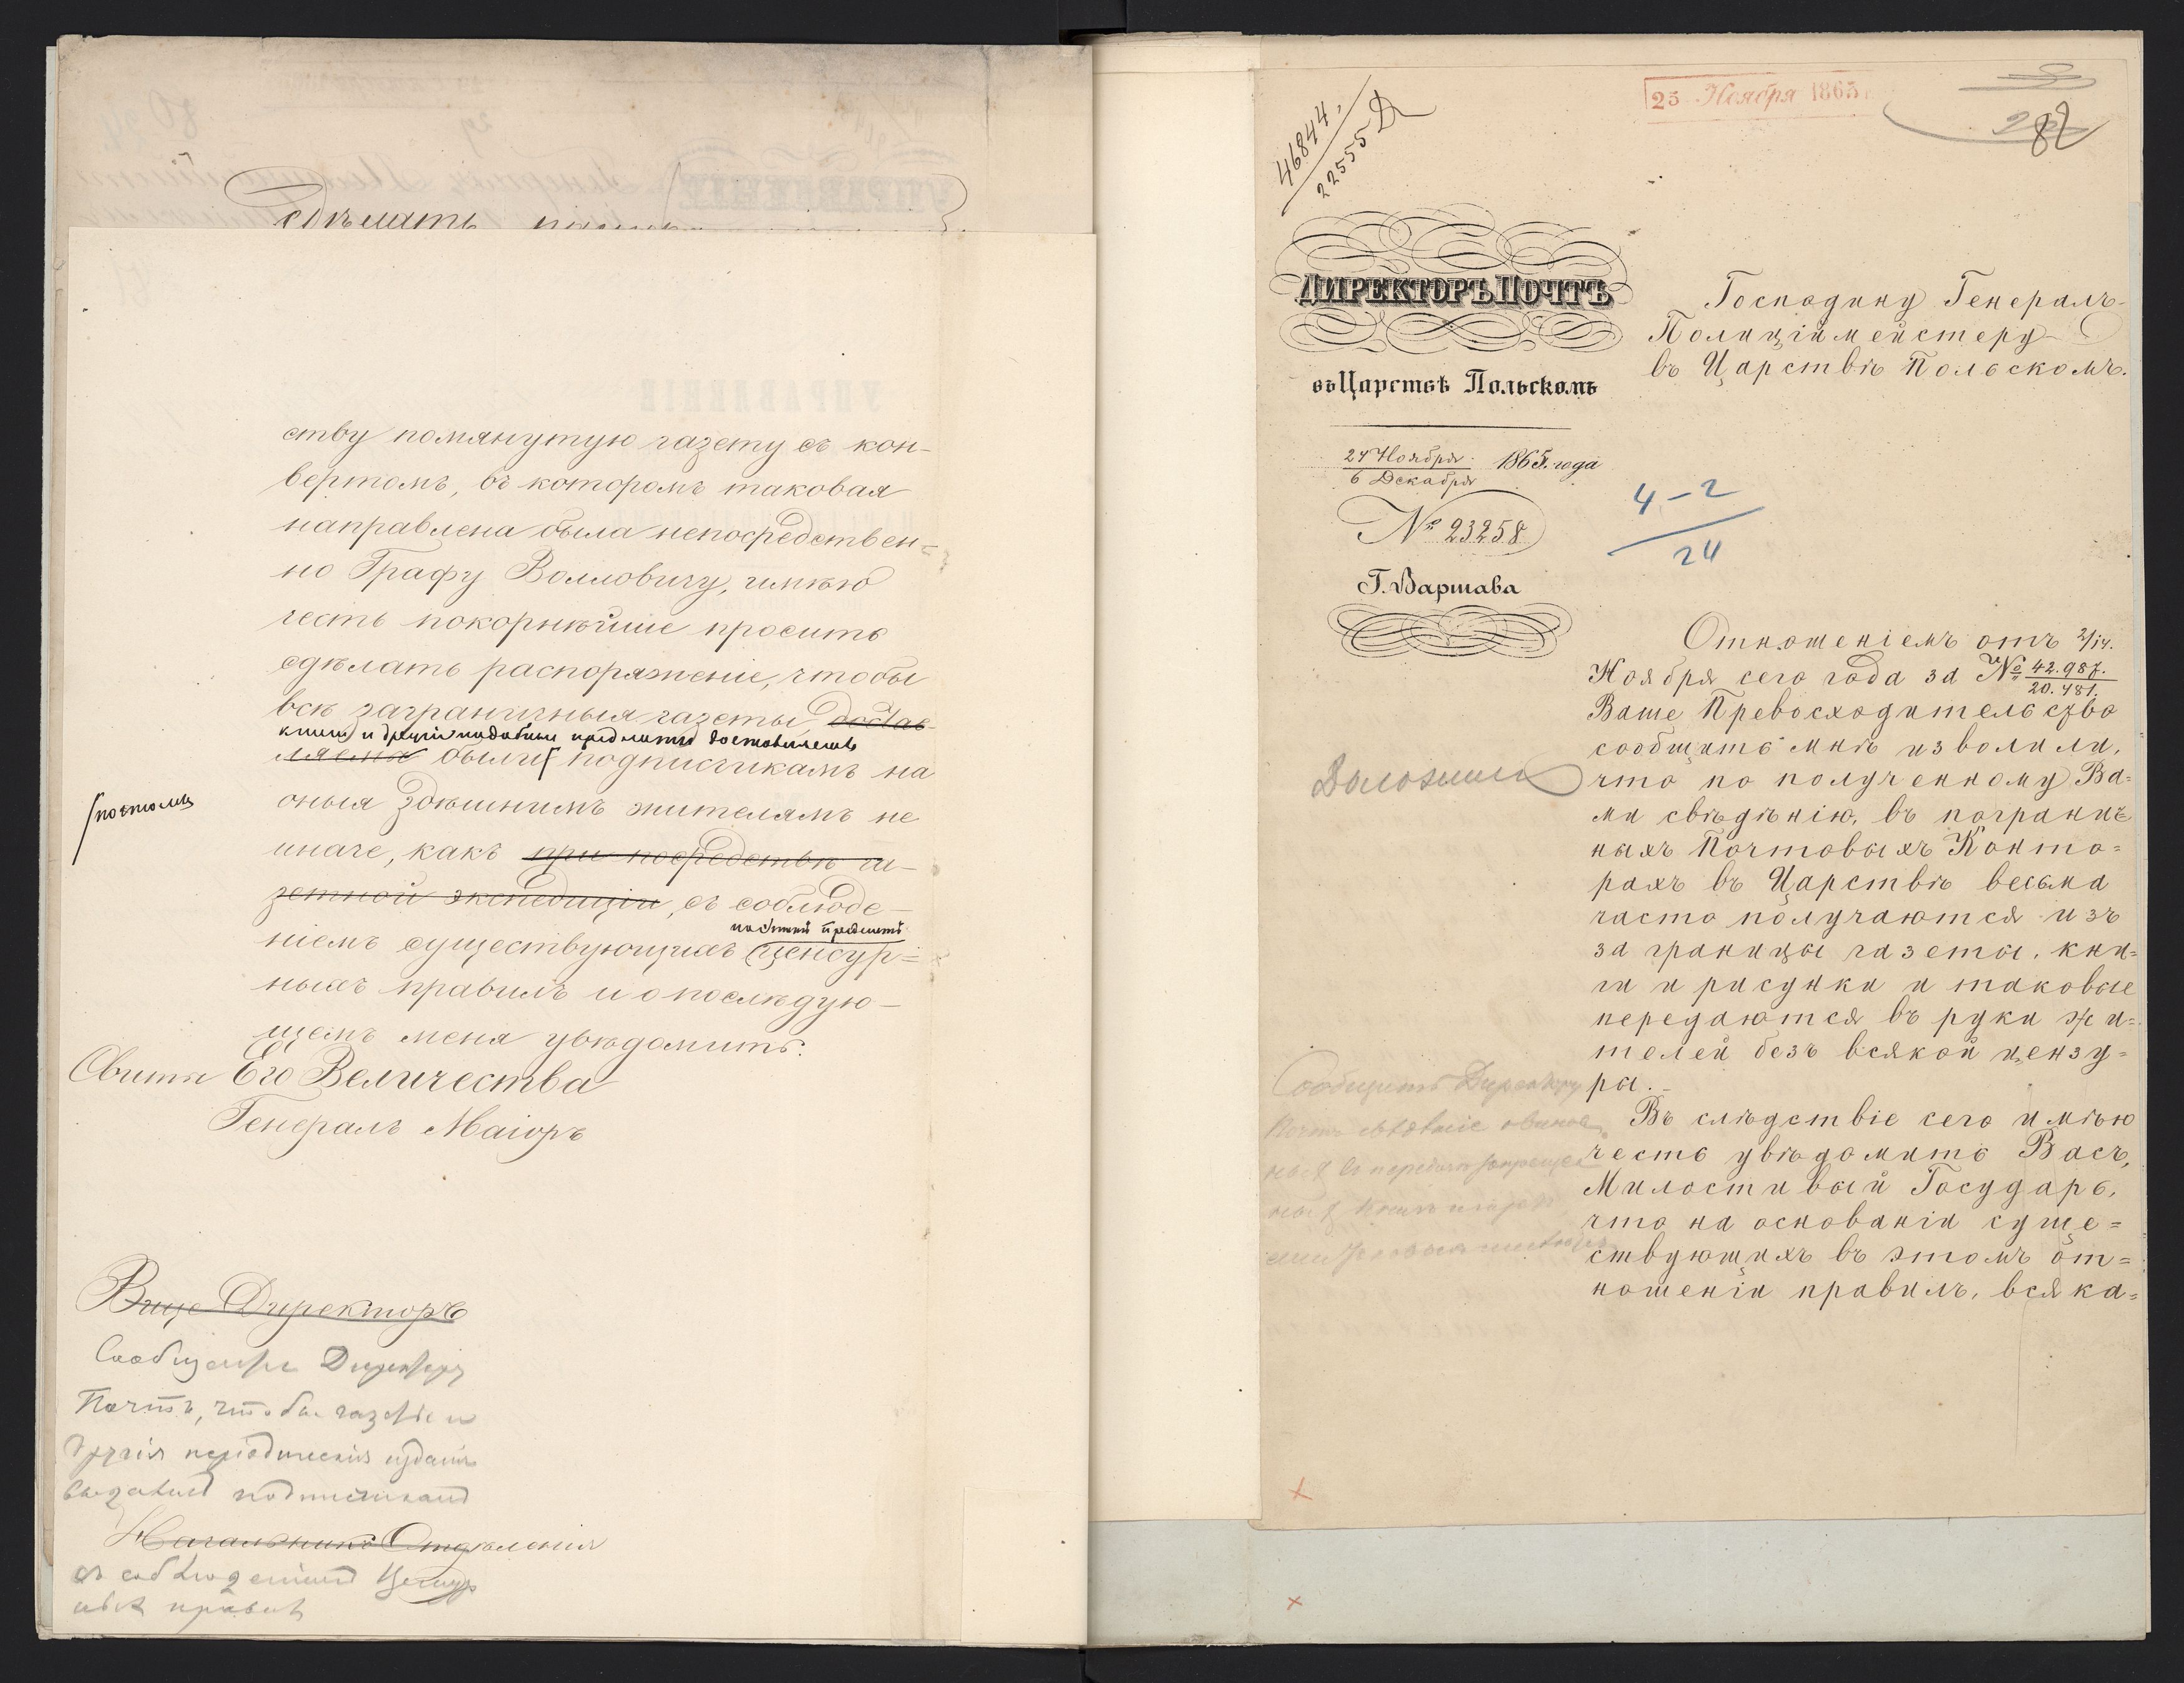 сдѣлать
ству помянутую газету съ кон-
вертомъ, въ которомъ таковая
направлена была непосредствен=
но Графу Волловичу, имѣю
честь покорнѣйше просить
сдѣлать распоряженіе, чтобы
всѣ заграничныя газеты достав-
книги и другіе подобные предметы доставляемы
ляемы были подписчикамъ на
почтою
оныя здѣшнимъ жителямъ не
иначе, какъ при посредствѣ га-
зетной экспедиціи, съ соблюде-
на этотъ предметъ
ніемъ существующихъ ценсур=
ныхъ правилъ и о послѣдую-
щемъ меня увѣдомить.
Свиты Его Величества
Генералъ Маіоръ
Вице Директоръ
Сообщить Директору
Почтъ, чтобы газеты и
другія періодическія изданія
выдавались подписчикамъ
Начальникъ Отдѣленія
съ соблюденіемъ Ценсур
ныхъ правилъ
46844.
22555
25 Ноября 1865
82
ДИРЕКТОРЪ ПОЧТЪ
въ Царствѣ Польскомъ
24 Ноября
6 Декабря
1865. года
№ 23258
Г. Варшава
4-2
24
Господину Генералъ-
Полиціймейстеру
въ Царствѣ Польскомъ.
Отношеніемъ отъ 2/14.
Ноября сего года за № 42.987.
20.481.
Ваше Превосходительство
сообщить мнѣ изволили,
что по полученному Ва=
ми свѣдѣнію, въ погранич=
ныхъ Почтовыхъ Конто=
рахъ въ Царствѣ весьма
часто получаются изъ
за границы газеты, кни=
ги и рисунки и таковые
передаются въ руки жи=
телей безъ всякой цензу=
ры.-
Въ слѣдствіе сего имѣю
честь увѣдомить Васъ,
Милостивый Государь,
что на основаніи суще=
ствующихъ въ этомъ от=
ношеніи правилъ, всяка=
Сообщить Директору
Почтъ